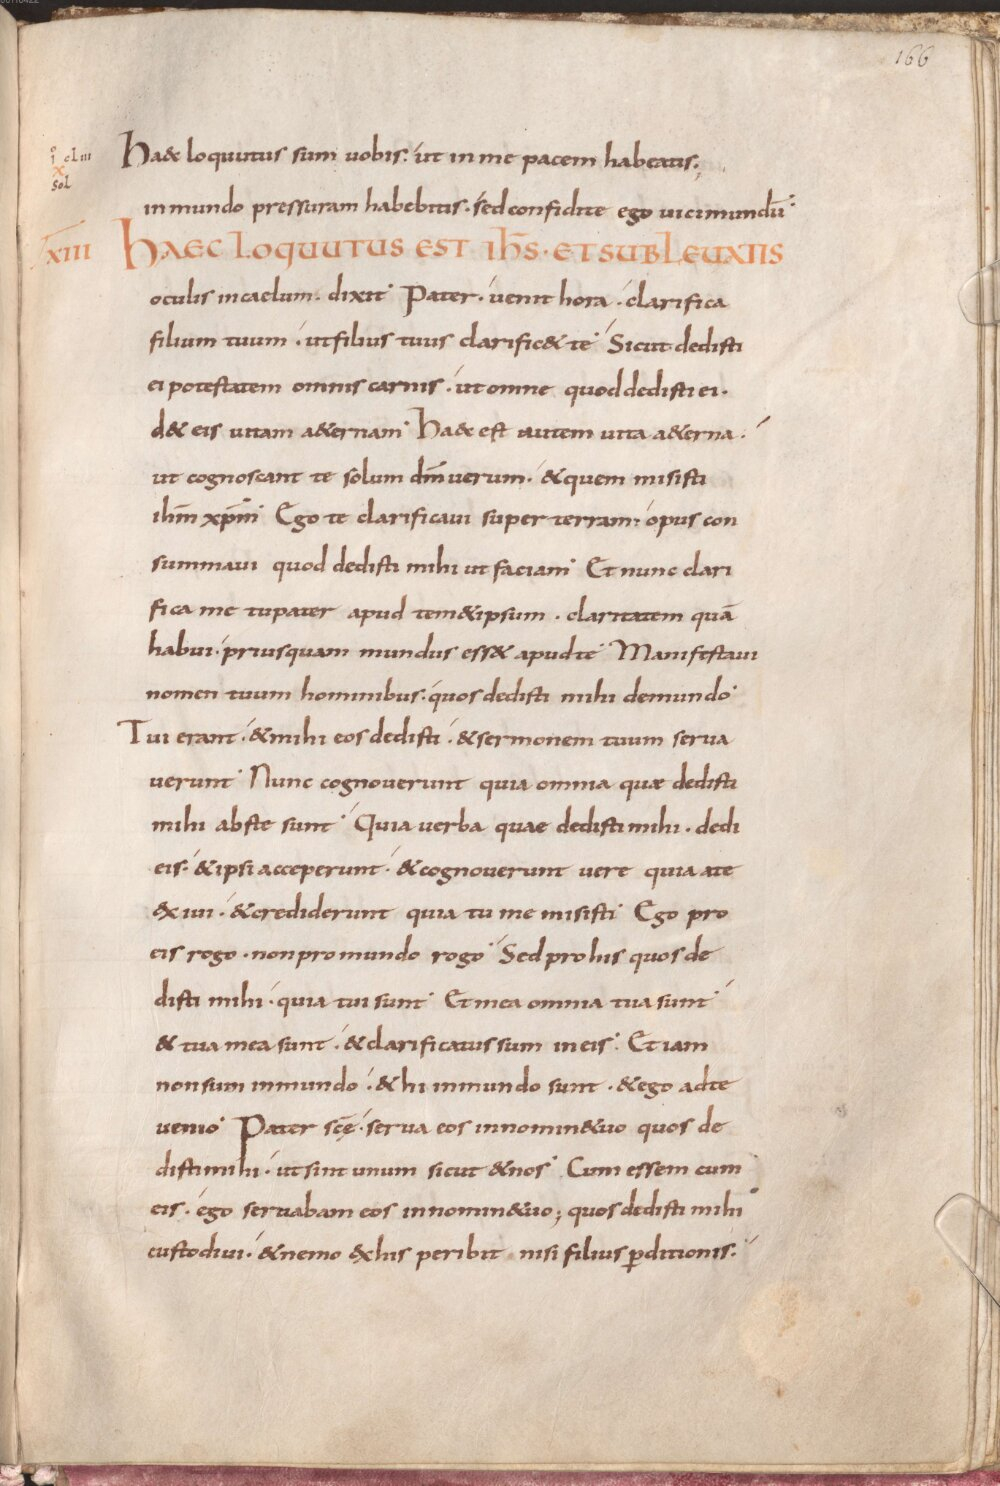 166
Io cliii
x
sol
Haec loquutus sum uobis. ut in me pacem habeatis;
in mundo pressuram habebitis. sed confidite ego uici mundū
XIII HAEC LOQUUTUS EST IHS. ET SUBLEUATIS
oculis in caelum. dixit Pater. uenit hora. clarifica
filium tuum. ut filius tuus clarific& te Sicut dedisti
ei potestatem omnis carnis. ut omne quod dedisti ei.
d& eis uitam a&ernam Haec est autem uita a&erna.
ut cognoscant te solum dm̄ uerum. & quem misisti
ihm̄ xpm̄ Ego te clarificaui super terram. opus con
summaui quod dedisti mihi ut faciam Et nunc clari
fica me tu pater apud tem&ipsum. claritatem quā
habui. priusquam mundus ess& apud te Manifestaui
nomen tuum hominibus. quos dedisti mihi de mundo
Tui erant. & mihi eos dedisti. & sermonem tuum serua
uerunt Nunc cognouerunt quia omnia quae dedisti
mihi abs te sunt Quia uerba quae dedisti mihi. dedi
eis. & ipsi acceperunt. & cognouerunt uere quia a te
exiui. & crediderunt quia tu me misisti Ego pro
eis rogo. non pro mundo rogo Sed pro his quos de
disti mihi. quia tui sunt Et mea omnia tua sunt
& tua mea sunt. & clarificatus sum in eis. Et iam
non sum in mundo. & hi in mundo sunt. & ego ad te
uenio Pater scē. serua eos in nomin& uo quos de
disti mihi. ut sint unum sicut & nos Cum essem cum
eis. ego seruabam eos in nomin& uo; quos dedisti mihi
custodiui. & nemo ex his peribit nisi filius p̄ditionis.